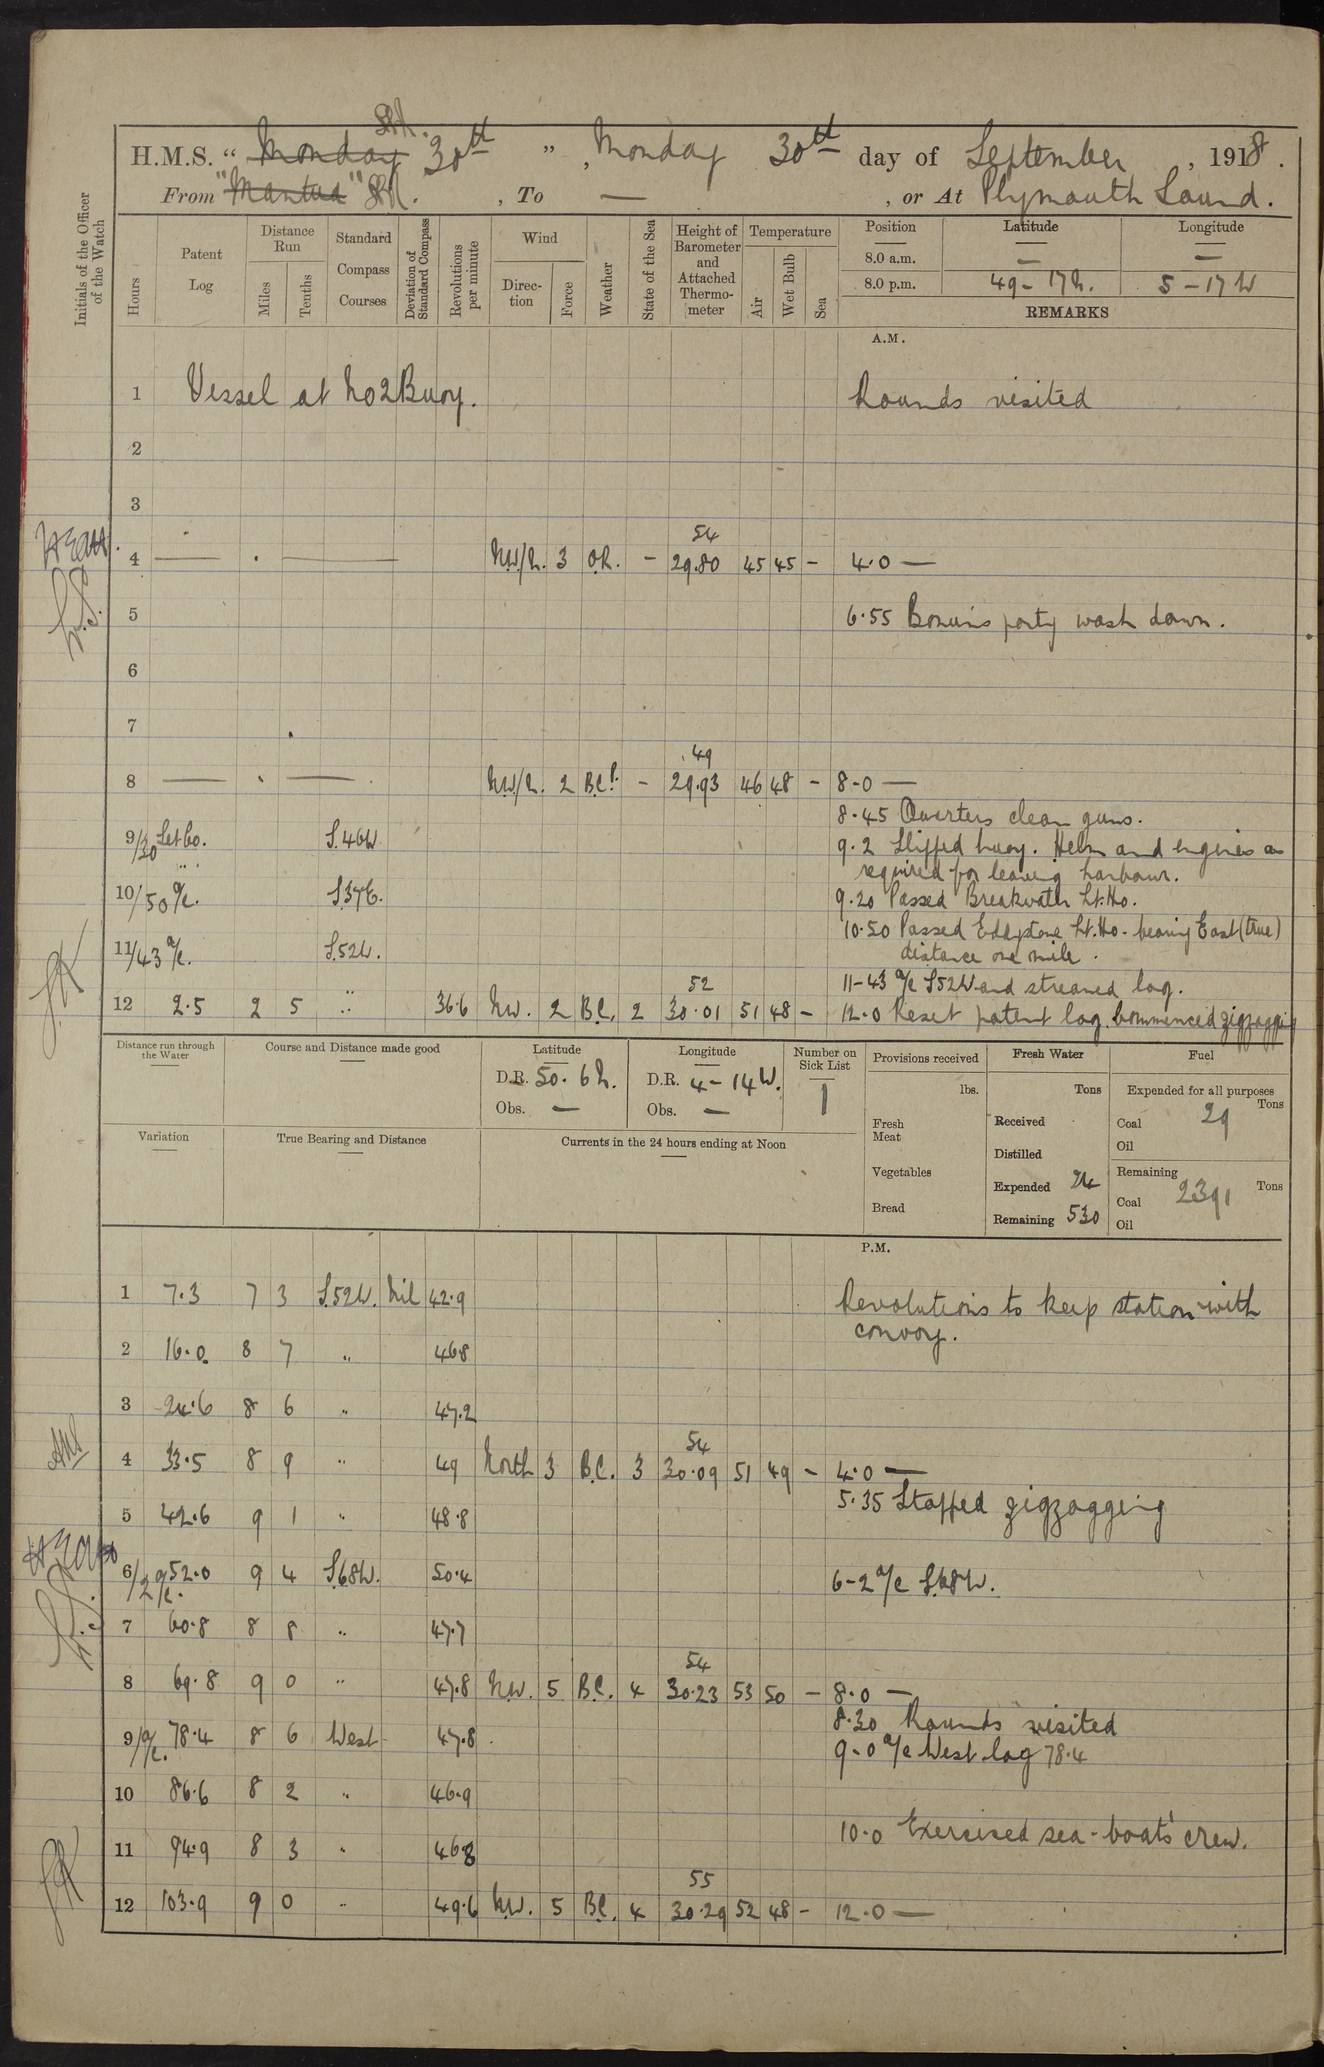 H.M.S. “ Monday 30th ” , Monday 30th day of September , 1918.
From "Mantua" , To — , or At Plymouth Sound.
Initials of the Officer of the Watch
Hours
Patent Log
Distance Run
Miles
Tenths
Standard Compass Courses
Deviation of Standard Compass
Revolutions per minute
Wind
Direction
Force
Weather
State of the Sea
Height of Barometer and Attached Thermometer
Temperature
Air
Wet Bulb
Sea
Position Latitude Longitude
8.0 a.m. — —
8.0 p.m. 49-17 N. 5-17 W
REMARKS
A.M.
1 Vessel at No 2 Buoy. Rounds visited
2
3
54
4 — . — NW/N. 3 OR. - 29.80 45 45 - 4.0 —
5 6.55 Bosun's party wash down.
6
7
49
8 — . — NW/N. 2 B.C.P. - 29.93 46 48 - 8-0 —
8.45 Quarters clean guns.
9/30 Set Co. S.46W 9.2 Slipped buoy. Helm and engines as
required for leaving harbour.
10/50 a/c. S37E. 9.20 Passed Breakwater Lt.Ho.
10.50 Passed Eddystone Lt.Ho. bearing East (true)
11/43 a/c. S.52W. distance one mile.
52 11-43 a/c S52W and streamed log.
12 2.5 2 5 " 36.6 NW. 2 B.C. 2 30.01 51 48 - 12.0 Reset patent log. Commenced zigzagging
Distance run through the Water
Course and Distance made good
Latitude
D.R. 50. 6 N.
Obs. —
Longitude
D.R. 4-14 W.
Obs. —
Number on Sick List
1
Provisions received
lbs.
Fresh Meat
Vegetables
Bread
Fresh Water
Tons
Received
Distilled
Expended 24
Remaining 530
Fuel
Expended for all purposes
Tons
Coal 29
Oil
Remaining
Tons
Coal 2391
Oil
Variation
True Bearing and Distance
Currents in the 24 hours ending at Noon
P.M.
1 7.3 7 3 S.52W. Nil 42.9 Revolutions to keep station with
convoy.
2 16.0 8 7 " 46.8
3 24.6 8 6 " 47.2
54
4 33.5 8 9 " 49 North 3 B.C. 3 30.09 51 49 - 4.0 —
5.35 Stopped zigzagging
5 42.6 9 1 " 48.8
6/2 a/c. 52.0 9 4 S.68W. 50.4 6-2 a/c S.68W.
7 60.8 8 8 " 47.7
54
8 69.8 9 0 " 47.8 N.W. 5 B.C. 4 30.23 53 50 - 8.0 —
8.30 Rounds visited
9/a/c. 78.4 8 6 West 47.8 9-0 a/c West log 78.4
10 86.6 8 2 " 46.9
10.0 Exercised sea-boat's crew.
11 94.9 8 3 " 46.8
55
12 103.9 9 0 " 49.6 N.W. 5 B.C. 4 30.29 52 48 - 12.0 —